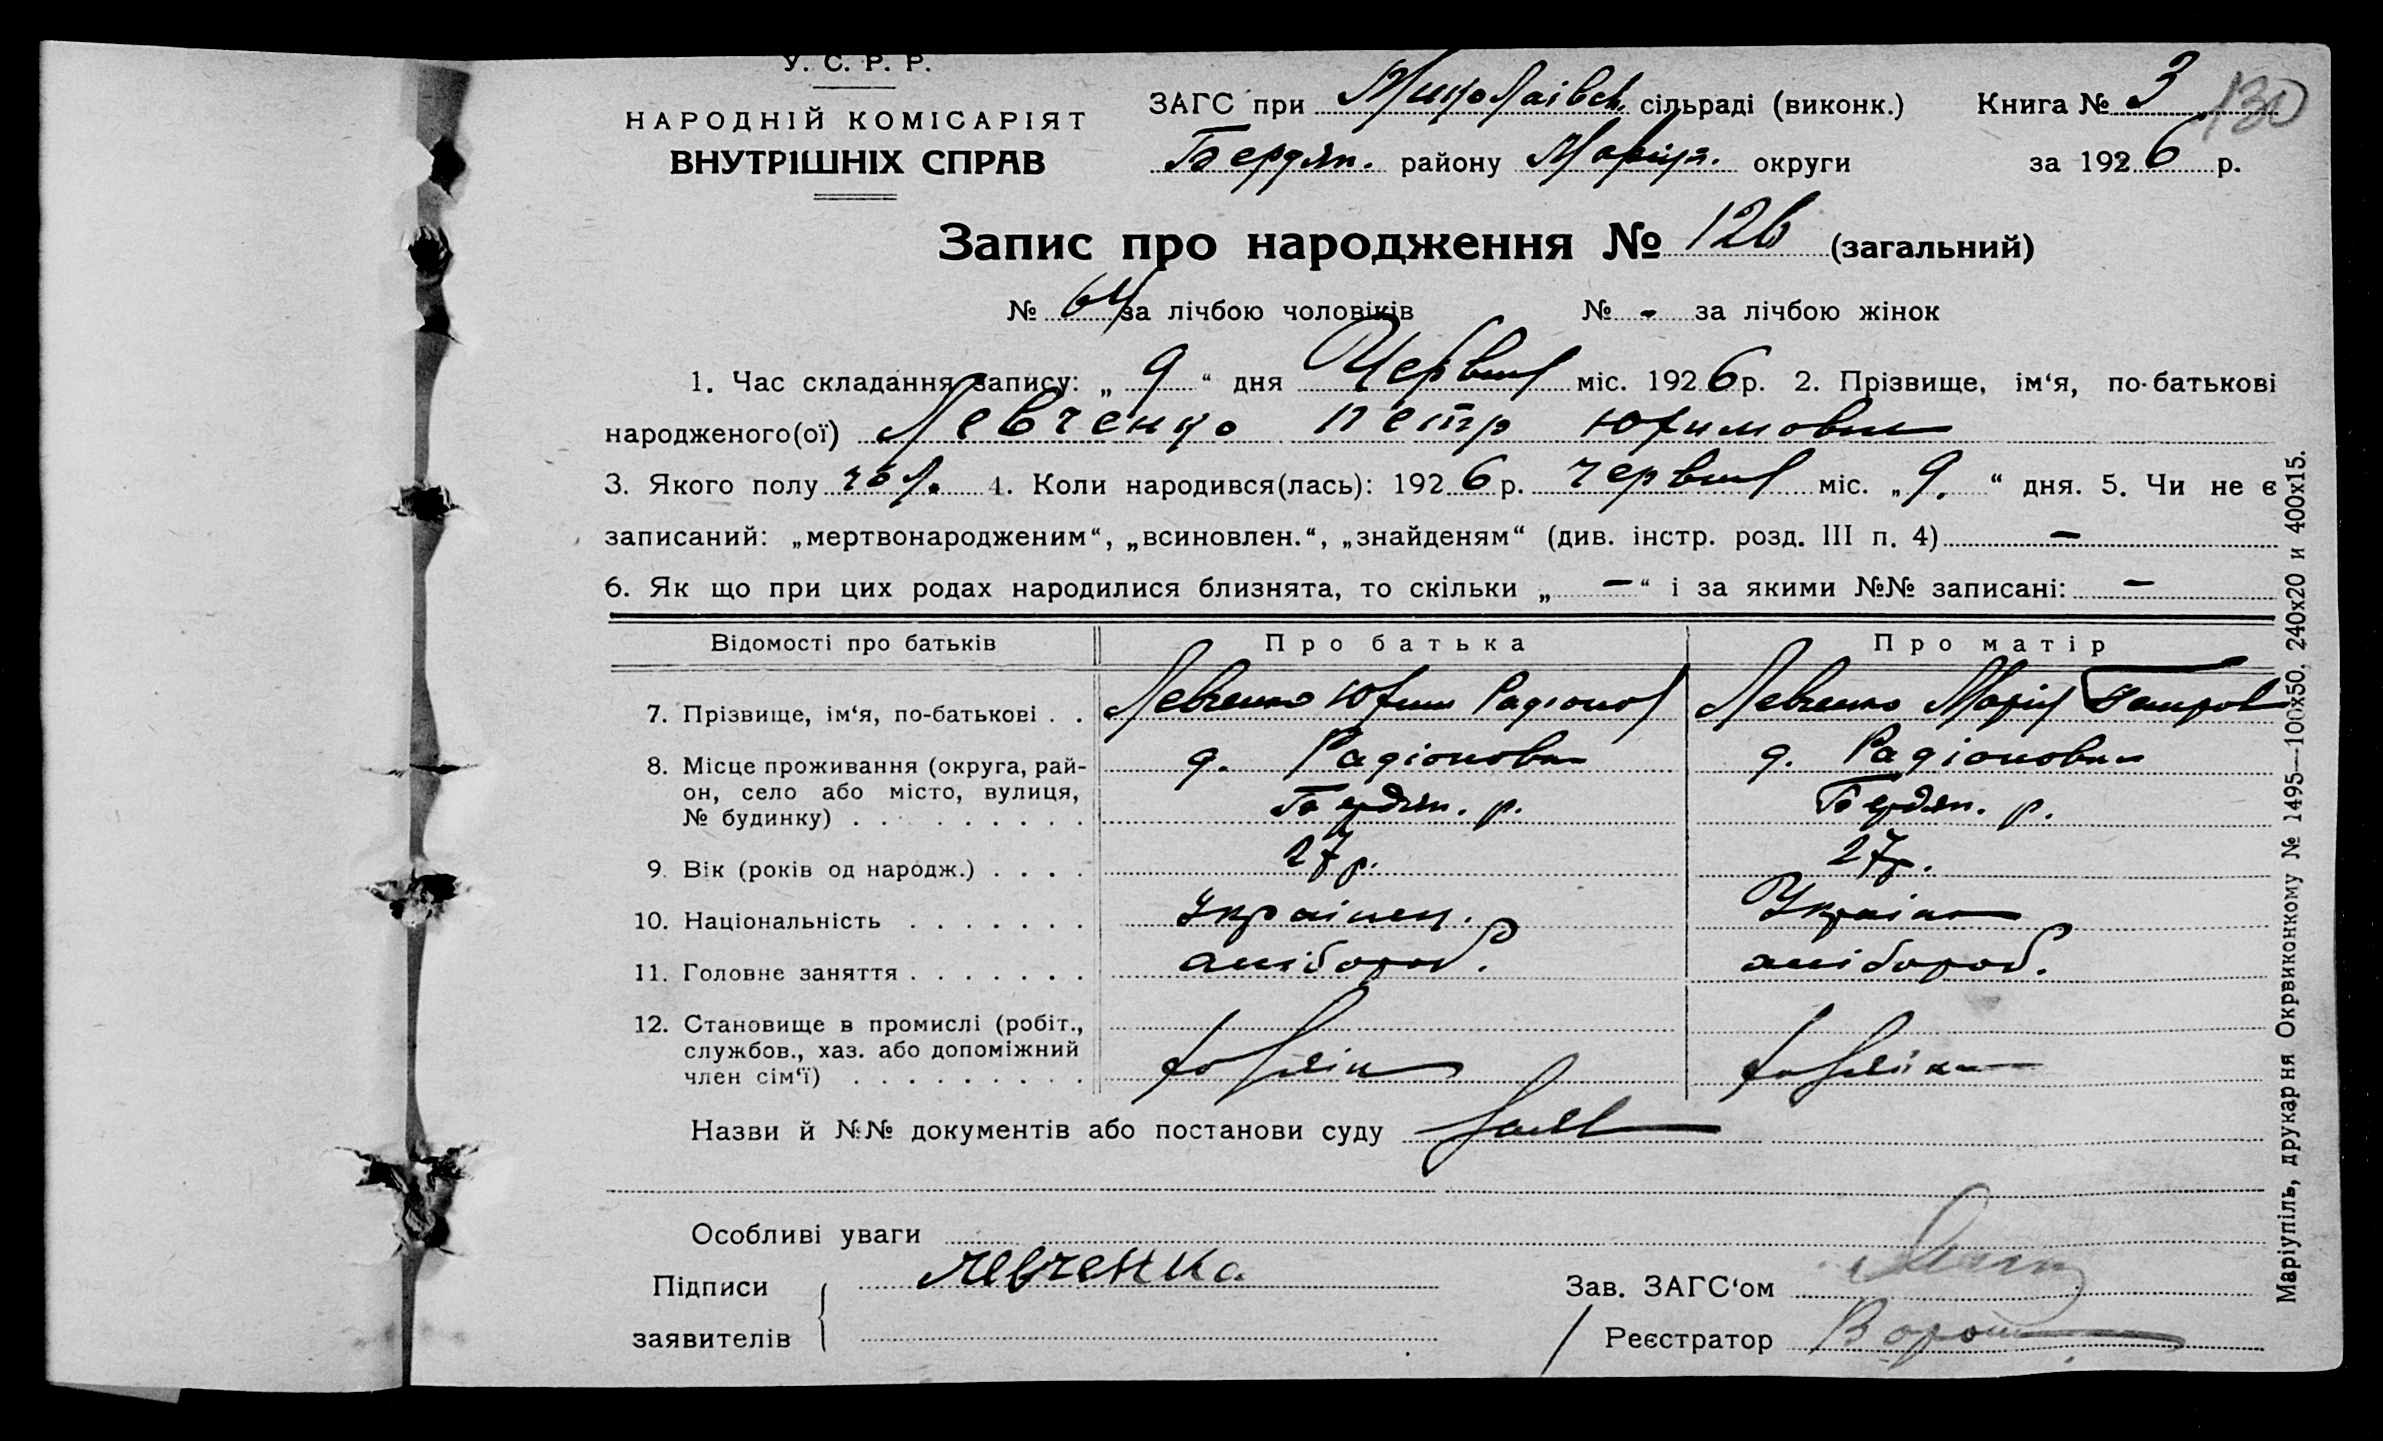 У. С. Р. Р.
НАРОДНІЙ КОМІСАРІЯТ
ВНУТРІШНІХ СПРАВ
ЗАГС при Миколаівсь. сільраді (виконк.) Книга № 3 130
Бердян. району Маріуп. округи за 1926 р.
Запис про народження № 126 (загальний)
№ 64 за лічбою чоловіків № - за лічбою жінок
1. Час складання запису: „ 9 “ дня Червня міс. 1926 р. 2. Прізвище, ім‘я, по-батькові
народженого(ої) Левченко Петр Юхимович
3. Якого полу чол. 4. Коли народився(лась): 1926 р. червня міс. „ 9. “ дня. 5. Чи не є
записаний: „мертвонародженим“, „всиновлен.“, „знайденям“ (див. інстр. розд. III п. 4) –
6. Як що при цих родах народилися близнята, то скільки „ – “ і за якими №№ записані: –
Відомості про батьків Про батька Про матір
7. Прізвище, ім‘я, по-батькові . . Левченко Юхим Радіонов Левченко Марія
8. Місце проживання (округа, рай-
он, село або місто, вулиця,
№ будинку) . . . . . . . . .
д. Радіоновка д. Радіоновка
Бердян. р. Бердян. р.
9. Вік (років од народж.) . . . . 27 р. 27 р.
10. Національність . . . . . . . Украінец. Украінка
11. Головне заняття . . . . . . . хлібороб. хлібороб.
12. Становище в промислі (робіт.,
службов., хаз. або допоміжний
член сім‘ї) . . . . . . . . .
хозяін хозяйка
Назви й №№ документів або постанови суду
Особливі уваги
Підписи левченка Зав. ЗАГС‘ом
заявителів Реєстратор
Маріупіль, друкарня Окрвиконкому № 1495—100х50, 240х20 и 400х15.